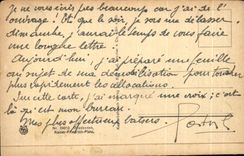 Je ne vous écris pas beaucoup car j'ai de l'
ouvrage! Dit que le soir, je vais me délasser,
dimanche, j'aurai le temps de vous faire
une longue lettre.
Aujourd'hui, j'ai préparé une feuille
au sujet de ma démobilisation pour toucher
plus rapidement les allocations.
Sur cette carte, j'ai marqué une croix; c'est
là qu'est mon bureau.
Mes plus affectueux baisers